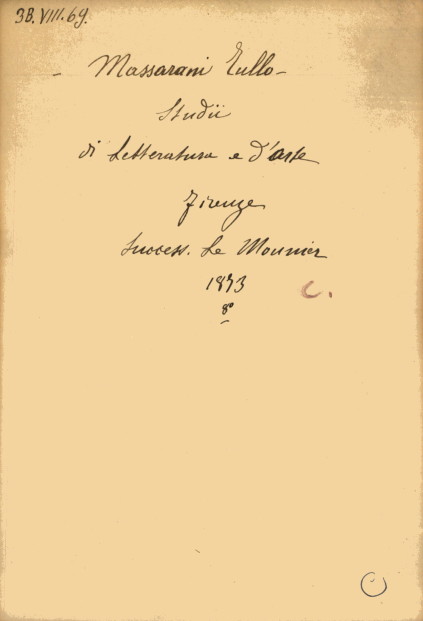 3B.VIII.69.
- Massarani Tullo -
Studii
di Letteratura e d'arte
Firenze
Success. Le Monnier
1873
8º
C.